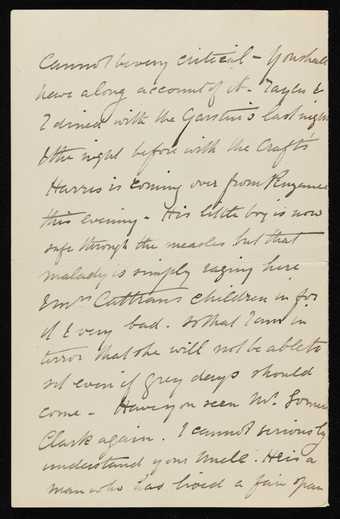 cannot be very critical – You shall
have a long account of it. Tayler &
I dined with the Garstin's last night
& the night before with the Crafts
Harris is coming over from Penzance
this evening – His little boy is now
safe through the measles but that
malady is simply raging here
& Mrs Cattran's children in for
it & very bad. So that I am in
terror that she will not be able to
sit even if grey days should
come – Have you seen Mr.
Clark again. I cannot seriously
understand your Uncle. He is a
man who has lived a fair span